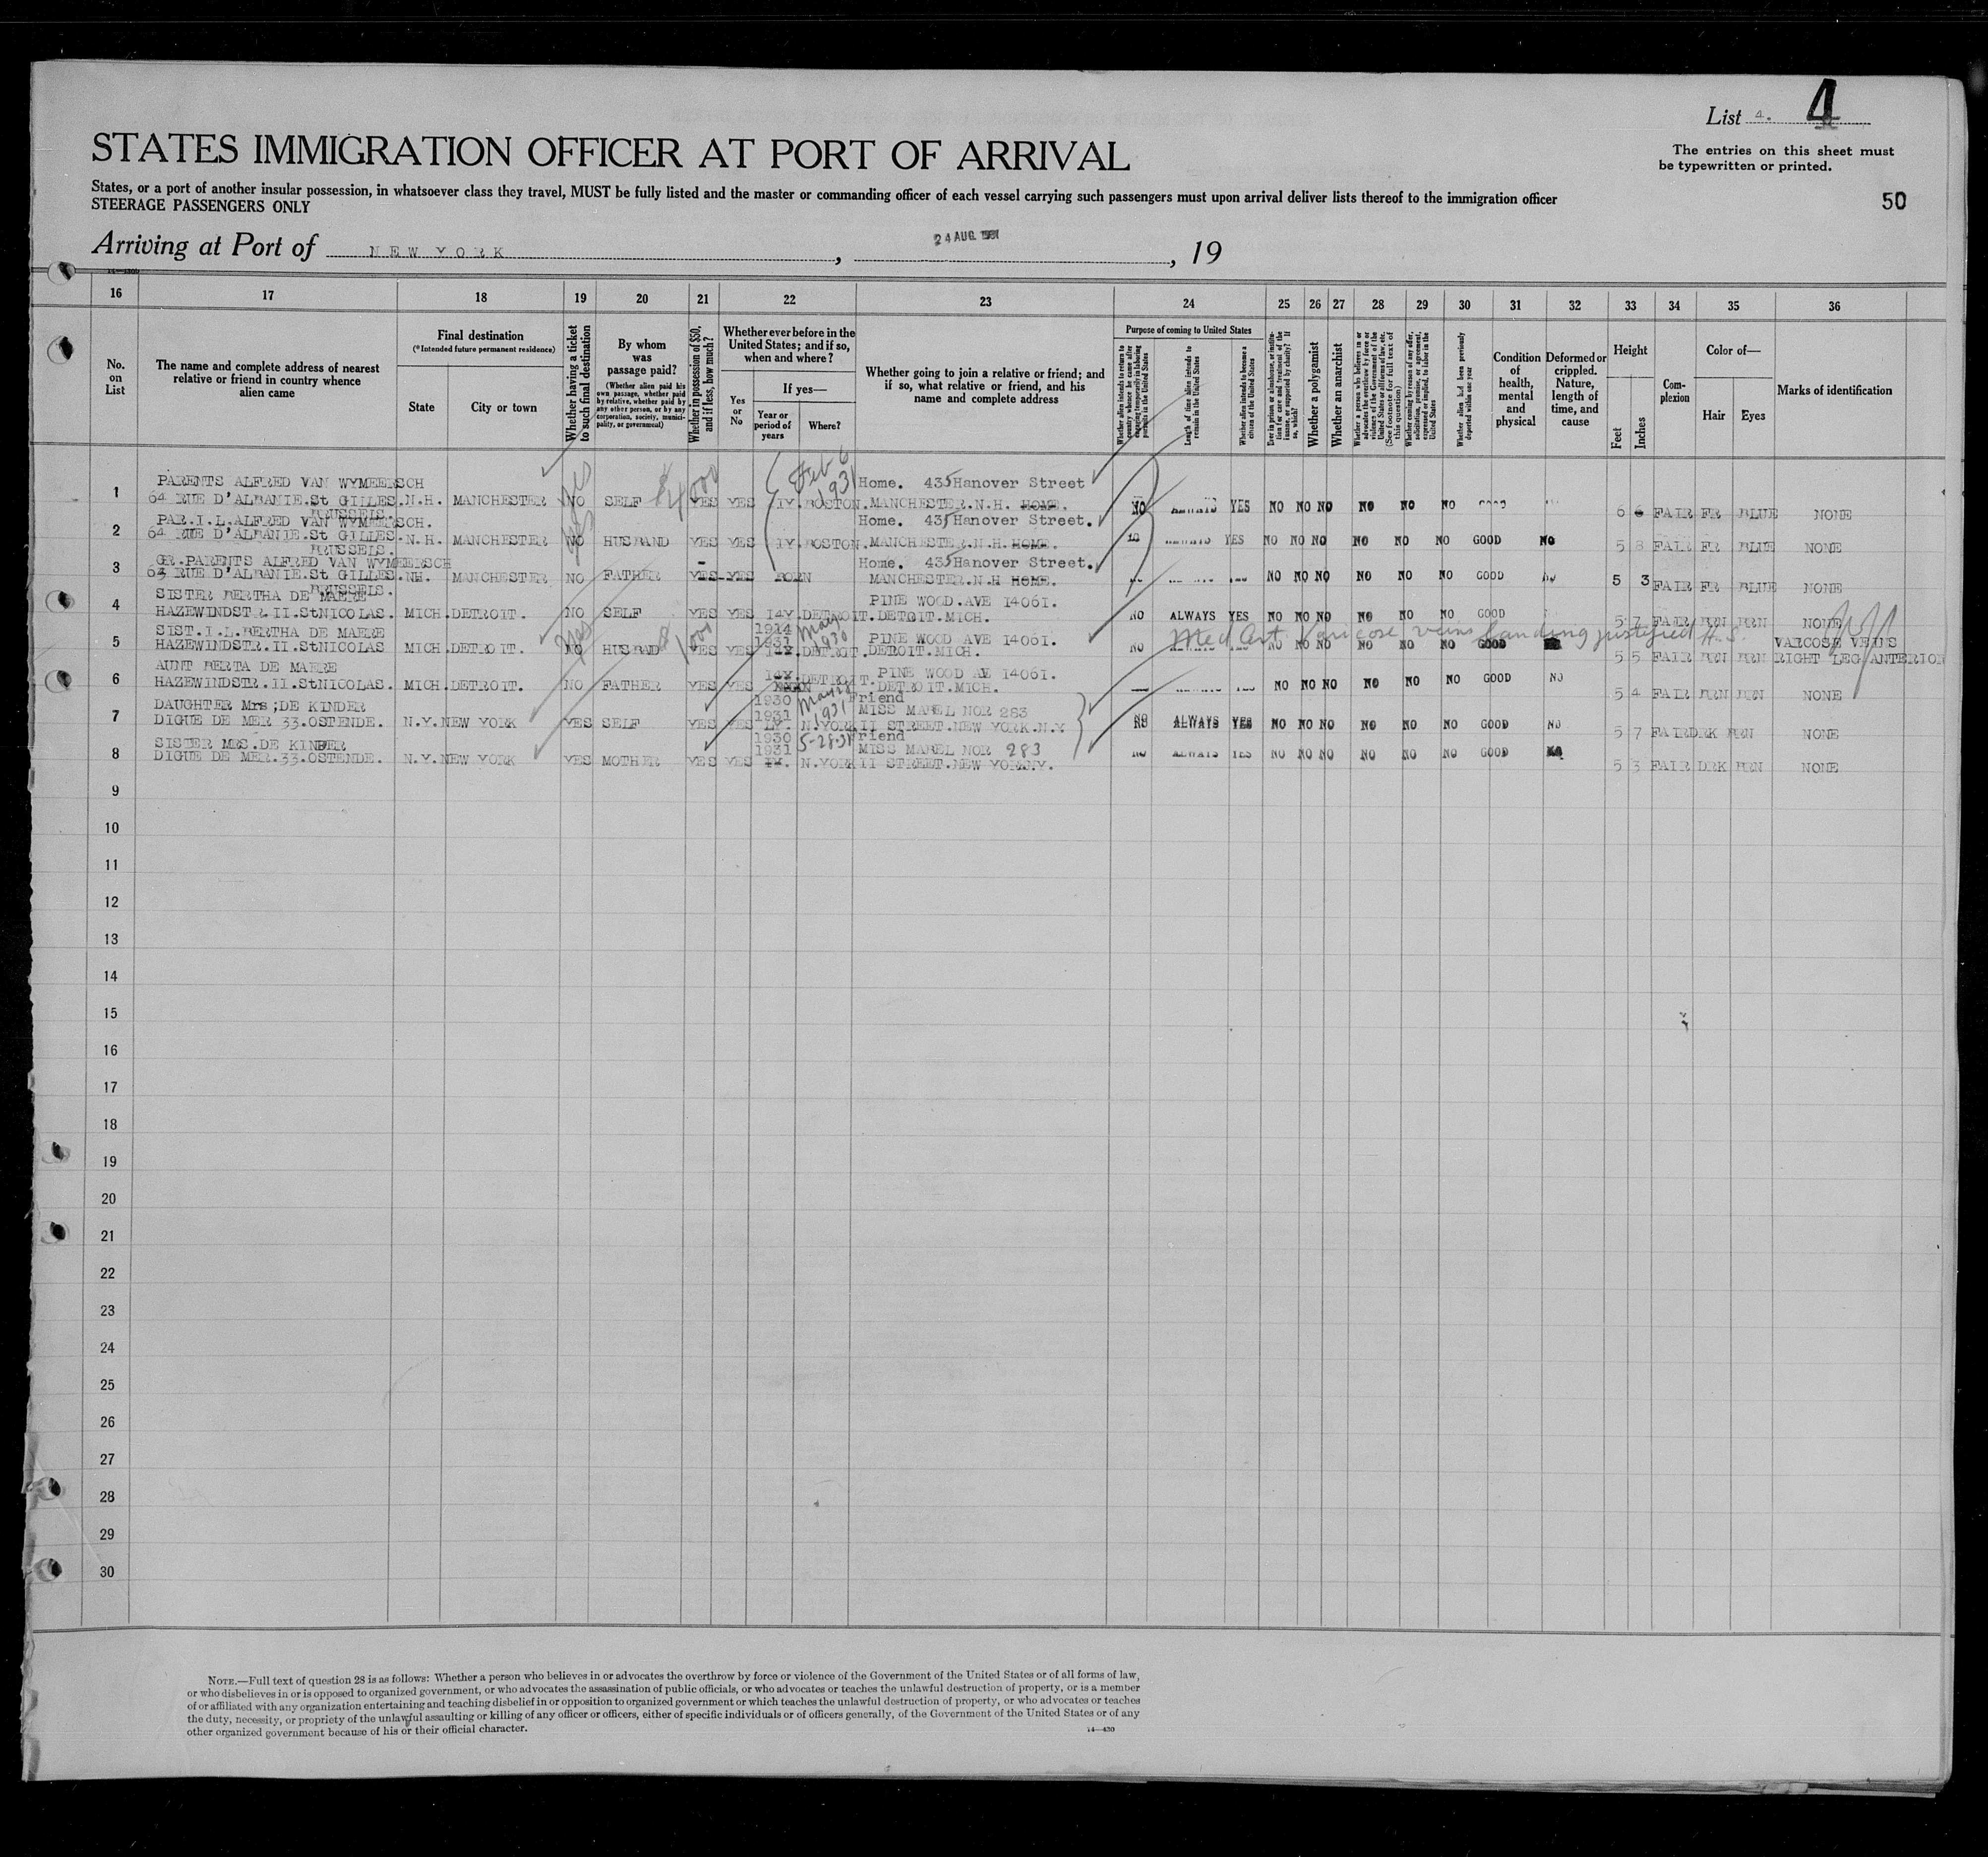 List 4. 4
STATES IMMIGRATION OFFICER AT PORT OF ARRIVAL
The entries on this sheet must
be typewritten or printed.
States, or a port of another insular possession, in whatsoever class they travel, MUST be fully listed and the master or commanding officer of each vessel carrying such passengers must upon arrival deliver lists thereof to the immigration officer
STEERAGE PASSENGERS ONLY
50
Arriving at Port of NEW YORK, 24 AUG. 1931, 19
16 17 18 19 20 21 22 23 24 25 26 27 28 29 30 31 32 33 34 35 36
No.
on
List
The name and complete address of nearest
relative or friend in country whence
alien came
Final destination
(*Intended future permanent residence)
State
City or town
Whether having a ticket
to such final destination
By whom
was
passage paid?
(Whether alien paid his
own passage, whether paid
by relative, whether paid by
any other person, or by any
corporation, society, munici-
pality, or government)
Whether in possession of $50,
and if less, how much?
Whether ever before in the
United States; and if so,
when and where?
Yes
or
No
If yes—
Year or
period of
years
Where?
Whether going to join a relative or friend; and
if so, what relative or friend, and his
name and complete address
Purpose of coming to United States
Whether alien intends to return to
country whence he came after
engaging temporarily in laboring
pursuits in the United States
Length of time alien intends to
remain in the United States
Whether alien intends to become a
citizen of the United States
Ever in prison or almshouse, or institu-
tion for care and treatment of the
insane, or supported by charity? If
so, which?
Whether a polygamist
Whether an anarchist
Whether a person who believes in or
advocates the overthrow by force or
violence of the Government of the
United States or all forms of law, etc.
(See footnote for full text of
this question)
Whether coming by reason of any offer,
solicitation, promise, or agreement,
expressed or implied, to labor in the
United States
Whether alien had been previously
deported within one year
Condition
of
health,
mental
and
physical
Deformed or
crippled.
Nature,
length of
time, and
cause
Height
Feet
Inches
Com-
plexion
Color of—
Hair
Eyes
Marks of identification
Feb 6
1931
1 PARENTS ALFRED VAN WYMEERSCH Home. 435 Hanover Street
64 RUE D'ALBANIE.St GILLES. N.H. MANCHESTER NO yes SELF $4000 YES YES 1Y. BOSTON. MANCHESTER.N.H. HOME. NO ALWAYS YES NO NO NO NO NO NO GOOD 6 6 FAIR FR BLUE NONE
BRUSSELS.
2 PAR.I.L.ALFRED VAN WYMEERSCH. Home. 435 Hanover Street.
64 RUE D'ALBANIE.St GILLES. N.H. MANCHESTER NO yes HUSBAND YES YES 1Y. BOSTON. MANCHESTER.N.H. HOME. YES NO NO NO NO NO NO GOOD NO 5 8 FAIR FR BLUE NONE
BRUSSELS.
3 GR.PARENTS ALFRED VAN WYMEERSCH Home. 435 Hanover Street.
64 RUE D'ALBANIE.St GILLES. NH. MANCHESTER NO FATHER YES YES BORN MANCHESTER.N.H HOME. NO NO NO NO NO NO GOOD NO 5 3 FAIR FR BLUE NONE
BRUSSELS.
4 SISTER BERTHA DE MAERE PINE WOOD.AVE 14061.
HAZEWINDSTR.II.StNICOLAS. MICH. DETROIT. NO SELF YES YES 14Y. DETROIT. DETROIT.MICH. NO ALWAYS YES NO NO NO NO NO NO GOOD 5 7 FAIR BRN BRN NONE
Med Cert Varicose veins landing justified
5 SIST.I.L.BERTHA DE MAERE 1914 May PINE WOOD AVE 14061.
HAZEWINDSTR.II.StNICOLAS MICH. DETROIT. NO yes HUSBAD $1000 YES YES 1931 1930 14Y. DETROIT. DETROIT.MICH. NO YES NO NO NO NO NO NO GOOD 5 5 FAIR BRN BRN VARCOSE VEINS
RIGHT LEG ANTERIOR
6 AUNT BERTA DE MAERE PINE WOOD AE 14061.
HAZEWINDSTR.II.StNICOLAS. MICH. DETROIT. NO FATHER YES YES 14Y. DETROIT. DETROIT.MICH. NO NO NO NO NO NO GOOD NO 5 4 FAIR BRN BRN NONE
7 DAUGHTER Mrs;DE KINDER 1930 1931 1931 Friend
MISS MABEL NOR 283
DIGUE DE MER 33.OSTENDE. N.Y. NEW YORK YES SELF YES YES N.YORK II STREET.NEW YORK.N.Y NO ALWAYS YES NO NO NO NO NO NO GOOD NO 5 7 FAIR DRK BRN NONE
8 SISTER MRS.DE KINDER 1930 1931 5-28-31 Friend
MISS MABEL NOR 283
DIGUE DE MER.33.OSTENDE. N.Y. NEW YORK YES MOTHER YES YES 1Y. N.YORK II STREET.NEW YORK.N.Y. NO ALWAYS YES NO NO NO NO NO NO GOOD 5 3 FAIR DRK BRN NONE
9
10
11
12
13
14
15
16
17
18
19
20
21
22
23
24
25
26
27
28
29
30
NOTE.—Full text of question 28 is as follows: Whether a person who believes in or advocates the overthrow by force or violence of the Government of the United States or of all forms of law,
or who disbelieves in or is opposed to organized government, or who advocates the assassination of public officials, or who advocates or teaches the unlawful destruction of property, or is a member
of or affiliated with any organization entertaining and teaching disbelief in or opposition to organized government or which teaches the unlawful destruction of property, or who advocates or teaches
the duty, necessity, or propriety of the unlawful assaulting or killing of any officer or officers, either of specific individuals or of officers generally, of the Government of the United States or of any
other organized government because of his or their official character.
14—430